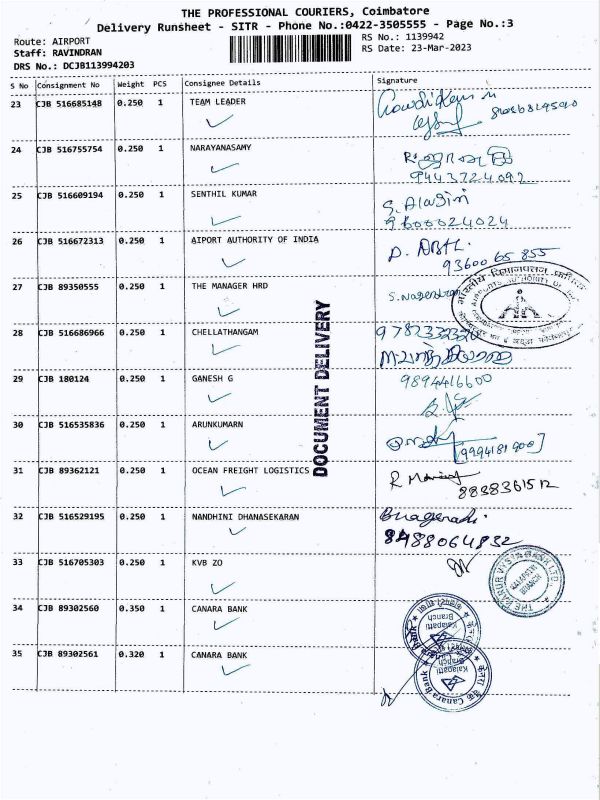 THE PROFESSIONAL COURIERS, Coimbatore
Delivery Runsheet - SITR - Phone No.:0422-3505555 - Page No.:3
Route: AIRPORT
RS No.: 1139942
Staff: RAVINDRAN
RS Date: 23-Mar-2023
DRS No.: DCJB113994203
S No Consignment No Weight PCS Consignee Details Signature
23 CJB 516685148 0.250 1 TEAM LEADER
24 CJB 516755754 0.250 1 NARAYANASAMY
9443724092
25 CJB 516609194 0.250 1 SENTHIL KUMAR S. Alagiri
9600024024
26 CJB 516672313 0.250 1 AIPORT AUTHORITY OF INDIA
93600 65 855
27 CJB 89350555 0.250 1 THE MANAGER HRD
AIRPORTS AUTHORITY OF
28 CJB 516686966 0.250 1 CHELLATHANGAM
29 CJB 180124 0.250 1 GANESH G 9894416600
30 CJB 516535836 0.250 1 ARUNKUMARN
31 CJB 89362121 0.250 1 OCEAN FREIGHT LOGISTICS
DOCUMENT DELIVERY
32 CJB 516529195 0.250 1 NANDHINI DHANASEKARAN
8488064832
33 CJB 516705303 0.250 1 KVB ZO
THE KARUR VYSYA BANK LTD.
KALAPATTI
BRANCH
34 CJB 89302560 0.350 1 CANARA BANK
Canara Bank
Kalapatti
Branch
35 CJB 89302561 0.320 1 CANARA BANK
Kalapatti
Branch
केनरा बैंक Canara Bank